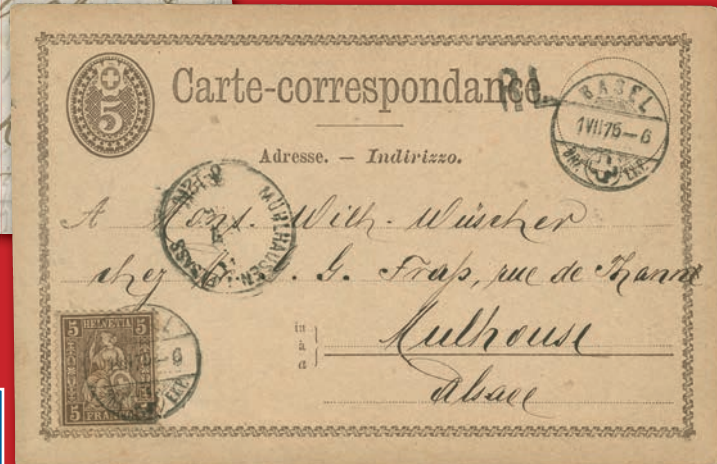 5
Carte-correspondance.
P.L.
BASEL
1 VII 75 – 6
BRF. EXP.
Adresse. — Indirizzo.
MÜHLHAUSEN
A Mons. Wilh. Wüscher
chez G. Frap, rue de Thann
in
à
a
Mulhouse
Alsace
5 HELVETIA 5
5 FRANCO 5
EXP.